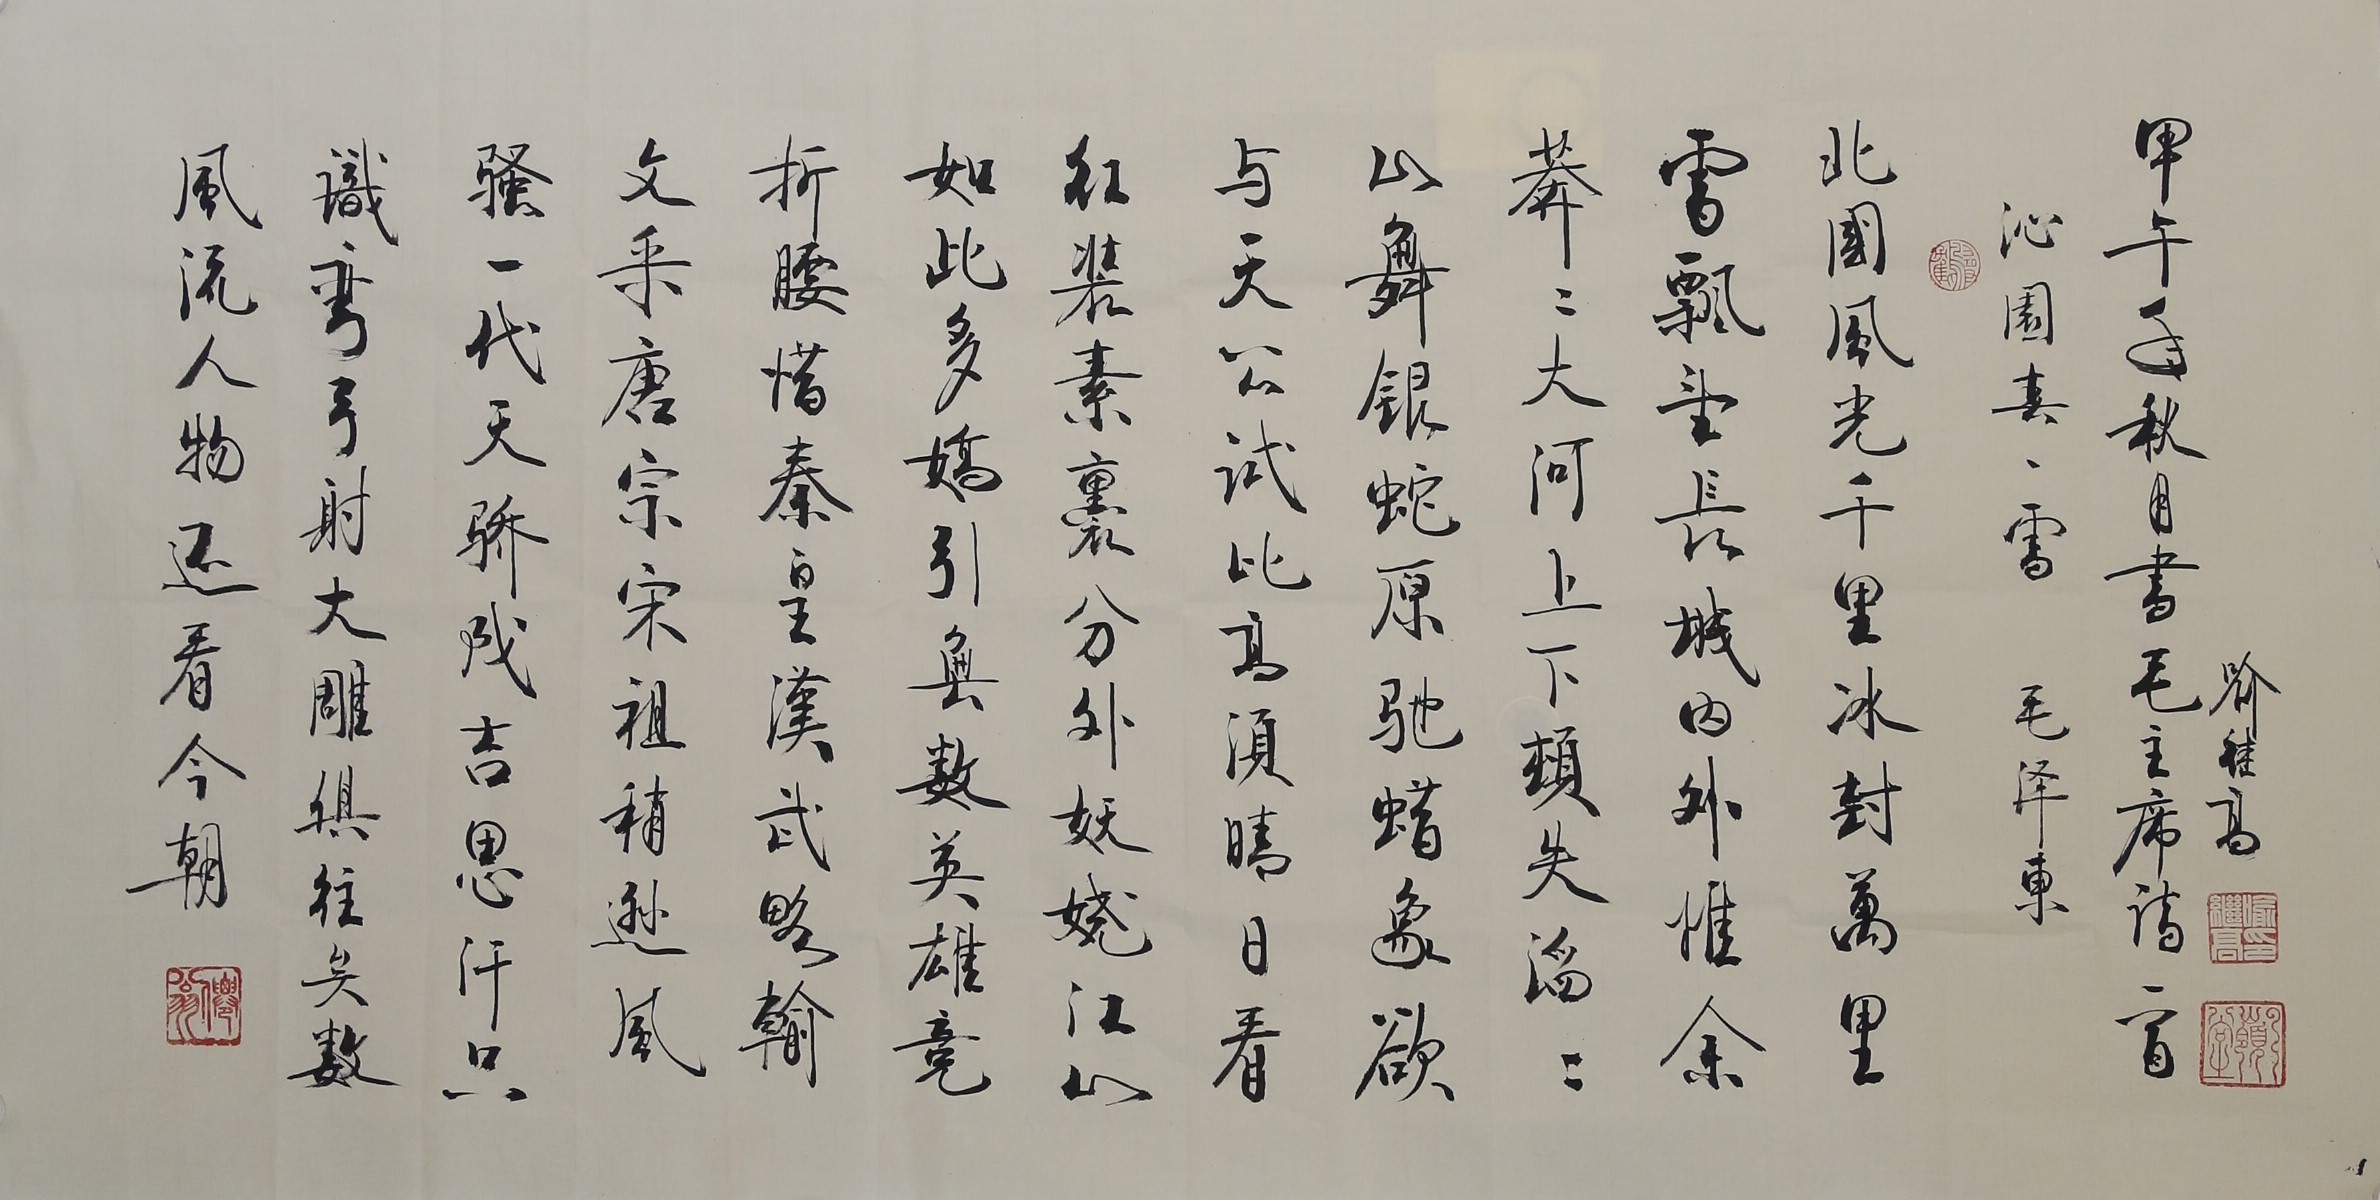 喻継高
甲午年秋月書毛主席詩一首
沁園春、雪 毛泽東
北國風光千里冰封萬里
雪飄望長城内外惟余
莽〻大河上下頓失滔〻
山舞銀蛇原驰蜡象欲
与天公试比高須晴日看
红装素裹分外妖娆江山
如此多嬌引無数英雄竞
折腰惜秦皇漢武略輸
文采唐宗宋祖稍逊風
骚一代天骄成吉思汗只
識弯弓射大雕俱往矣数
風流人物还看今朝
喻印繼高